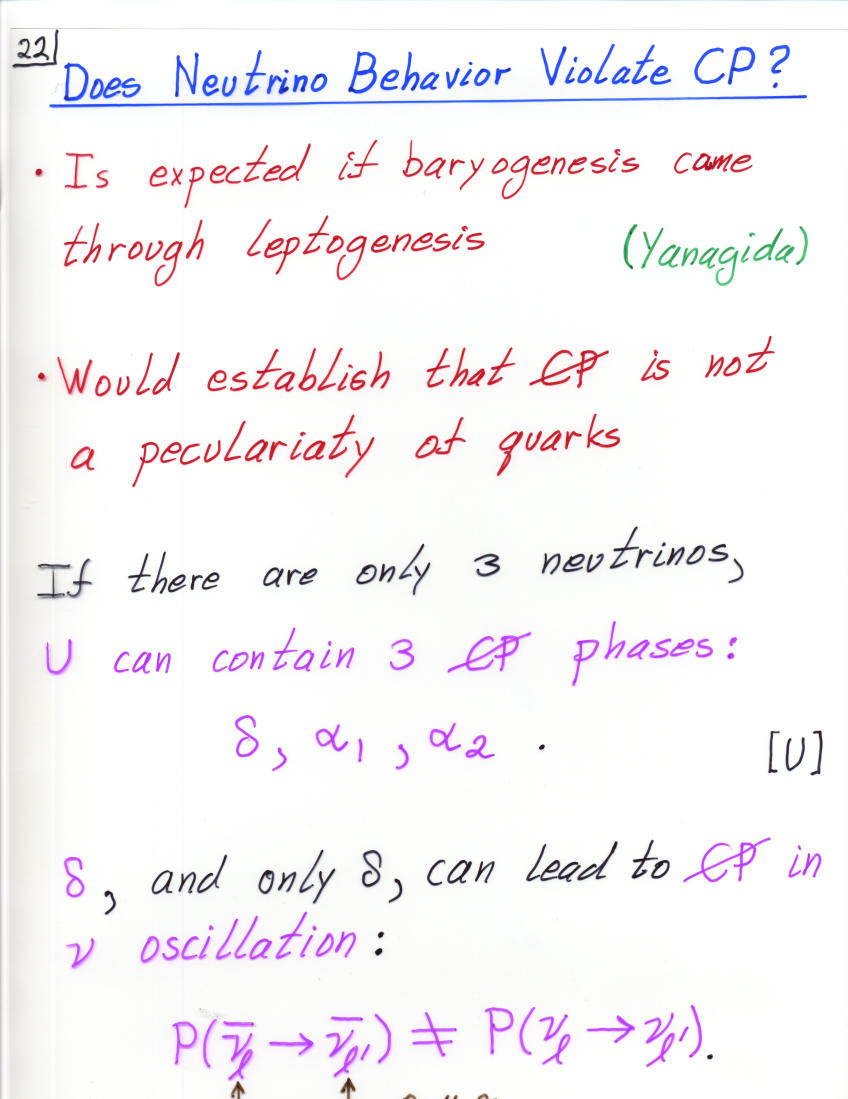 22
Does Neutrino Behavior Violate CP?
• Is expected if baryogenesis came
through leptogenesis (Yanagida)
• Would establish that C̸P̸ is not
a peculariaty of quarks
If there are only 3 neutrinos,
U can contain 3 C̸P̸ phases:
δ, α₁, α₂ . [U]
δ, and only δ, can lead to C̸P̸ in
ν oscillation:
P(ν̅ₗ → ν̅ₗ′) ≠ P(νₗ → νₗ′).